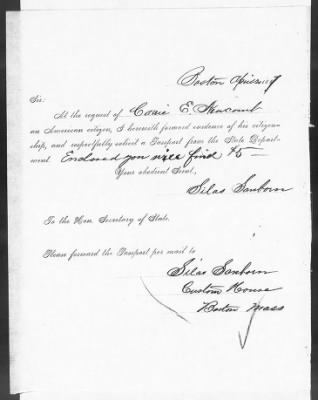 Boston April
Sir:
At the request of Carrie E. Newcomb
an American citizen, I herewith forward evidence of his citizen-
ship, and respectfully solicit a Passport from the State Depart-
ment. Enclosed you will find $5—
Your obedient Servt,
Silas Sanborn
To the Hon. Secretary of State.
Please forward the Passport per mail to
Silas Sanborn
Custom House
Boston Mass